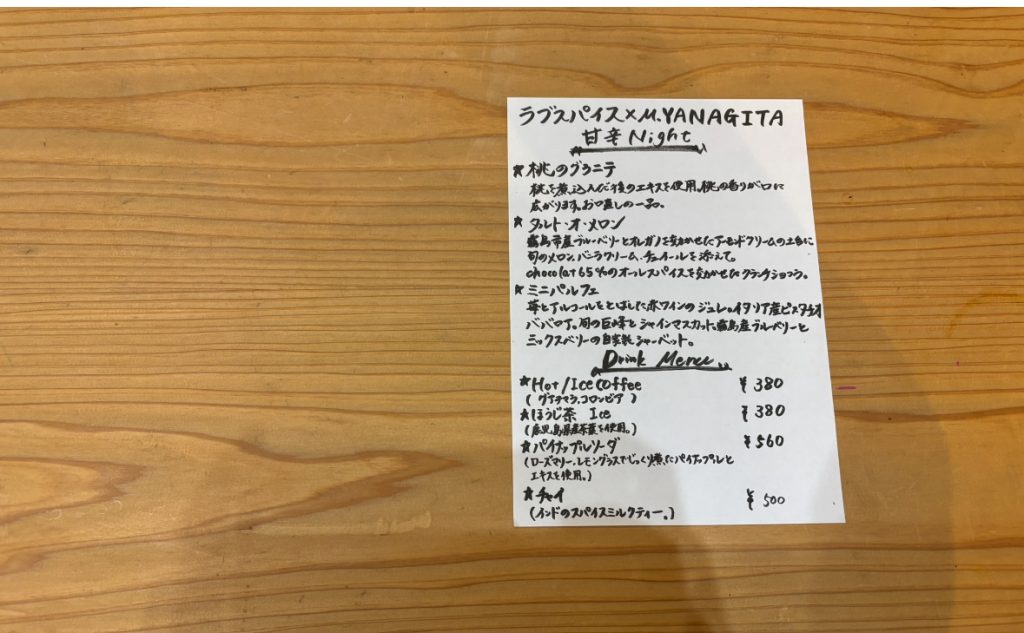 ラブスパイス×M.YANAGITA
甘辛Night
★桃のグラニテ
桃を煮込んだ後のエキスを使用。桃の香りが口に
広がります。お口直しの一品。
★タルト・オ・メロン
霧島市産ブルーベリーとオレガノを効かせたアーモンドクリームの土台に
旬のメロン、バニラクリーム、チュイールを添えて。
chocolat65%のオールスパイスを効かせたクランチショコラ。
★ミニパルフェ
苺とアルコールをとばした赤ワインのジュレ。イタリア産ピスタチオ
ババロア。旬の巨峰とシャインマスカット。霧島産ブルーベリーと
ミックスベリーの自家製シャーベット。
Drink Menu
★Hot/Ice Coffee ¥380
(グアテマラ、コロンビア)
★ほうじ茶 Ice ¥380
(鹿児島県産茶葉を使用。)
★パイナップルソーダ ¥560
(ローズマリー、レモングラスでじっくり煮たパイナップルと
エキスを使用。)
★チャイ ¥500
(インドのスパイスミルクティー。)